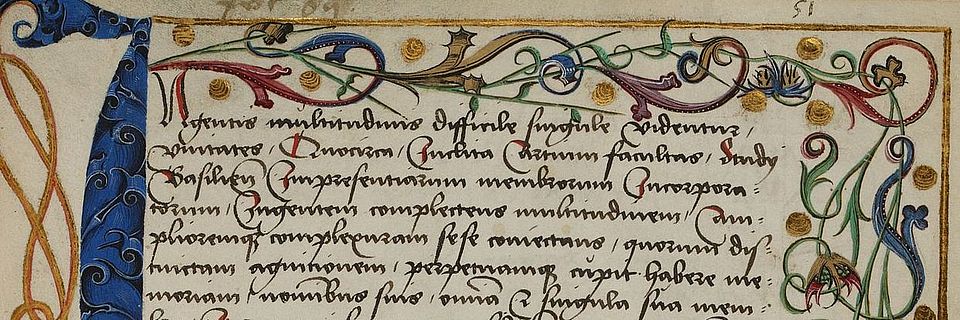 51
Ingentis multitudinis difficile singule videntur,
vnitates, Quocirca, Inclita Artium facultas, studij
Basilien̄ Impresentiarum membrorum Incorpora=
torum, Ingentem complectens multitudinem, Am=
plioremq; complexuram sese coniectans, quorum dis=
tinctam agnitionem, perpetuamq; cupit habere me=
moriam, nominibus suis, omnia & singula sua mem=